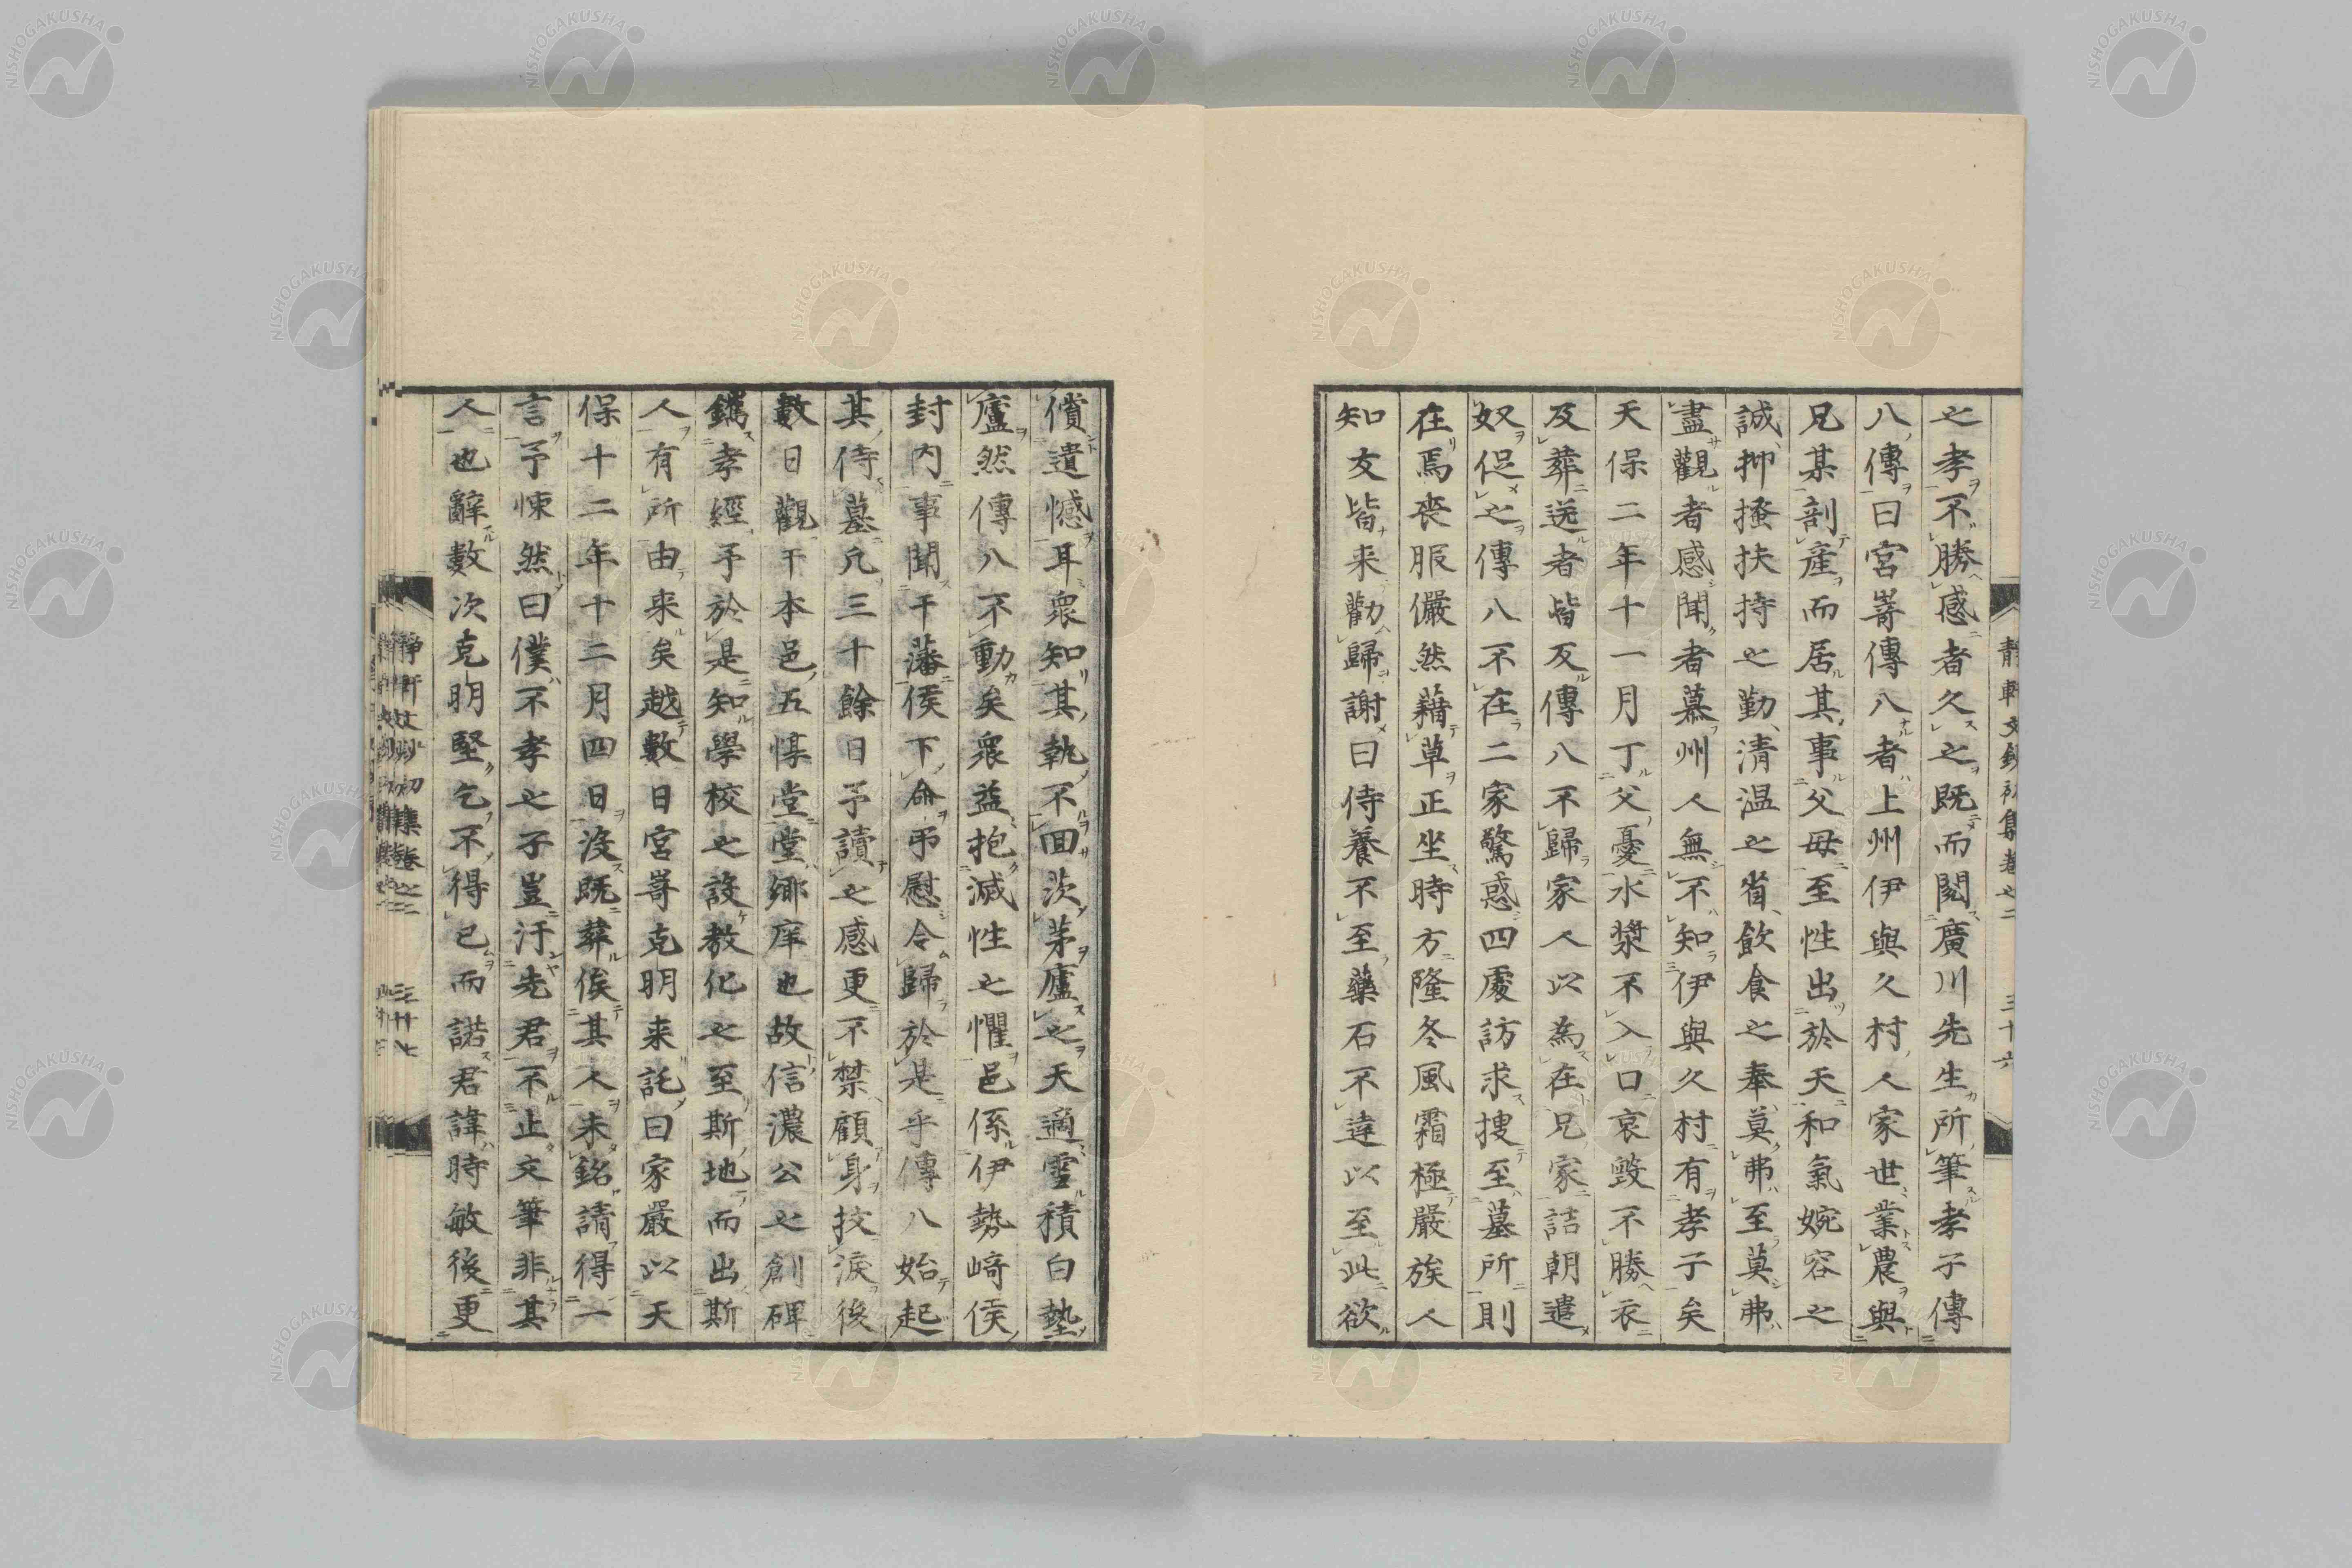 之孝不勝感者久之既而閱廣川先生所筆孝子傳
八傳曰宮嵜傳八者上州伊與久村人家世業農與
兄某剖產而居其事父母至性出於天和氣婉容之
誠抑搔扶持之勤清温之省飲食之奉莫弗至莫弗
盡觀者感聞者慕州人無不知伊與久村有孝子矣
天保二年十一月丁父憂水漿不入口哀毀不勝衣
及葬送者皆反傳八不歸家人以為在兄家詰朝遣
奴促之傳八不在二家驚惑四處訪求搜至墓所則
在焉喪服儼然藉草正坐時方隆冬風霜極嚴族人
知友皆来勸歸謝曰侍養不至藥石不違以至此欲
償遺憾耳眾知其執不回茨茅廬之天適雪積白墊
廬然傳八不動矣眾益抱滅性之懼邑係伊勢﨑侯
封内事聞于藩侯下命弔慰令歸於是乎傳八始起
其侍墓凢三十餘日予讀之感更不禁顧身抆淚後
數日觀于本邑五惇堂堂鄉庠也故信濃公之創碑
鐫孝經予於是知學校之設教化之至斯地而出斯
人有所由来矣越數日宮嵜克明来託曰家嚴以天
保十二年十二月四日没既葬俟其人未銘請得一
言予悚然曰僕不孝之子豈汙先君不止文筆非其
人也辭數次克明堅乞不得已而諾君諱時敏後更
靜軒文鈔初集卷之二 三十六
靜軒文鈔初集卷之二 三十七
NISHOGAKUSHA